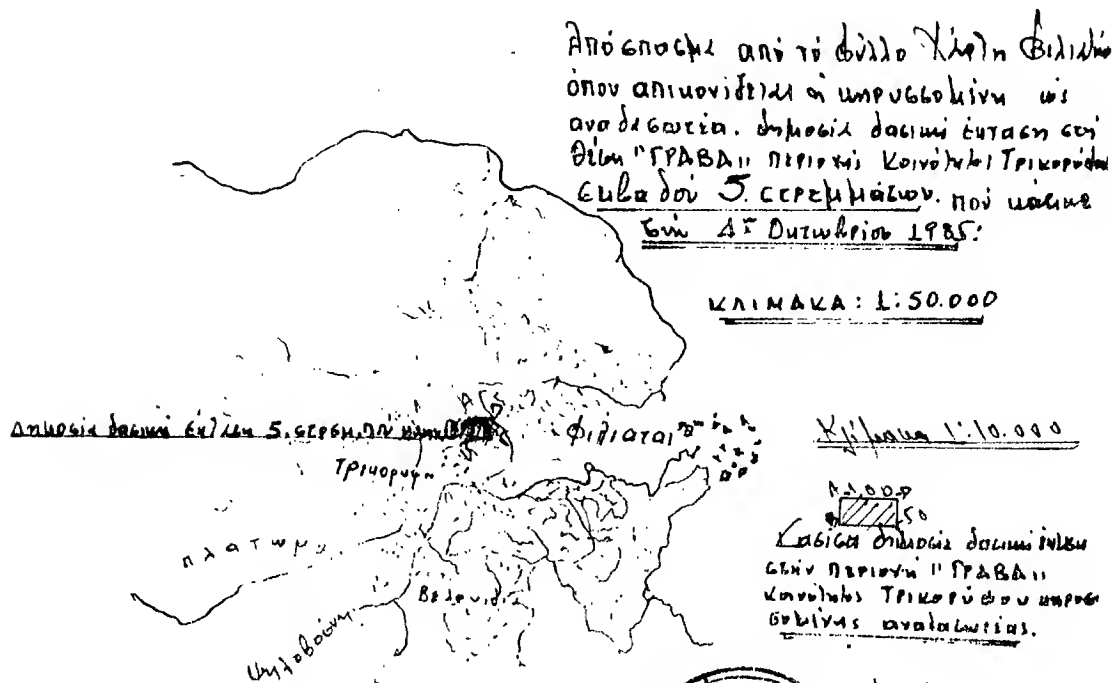 Απόσπασμα από τό φύλλο Χάρτη Φιλιατών
όπου απικονίζεται η κηρυσσομένη ως
αναδασωτέα. δημοσία δασική έκταση στή
θέση "ΓΡΑΒΑ" περιοχής Κοινότητος Τρικορύφου
εμβαδού 5. στρεμμάτων. πού κάηκε
την 4η Οκτωβρίου 1985:
ΚΛΙΜΑΚΑ: 1:50.000
Δημοσία δασική έκταση 5. στρεμ. πού κάηκε
Φιλιαται
Τρικορυφ
πλατωμα
Βελανιδιά
Κλίμακα 1:10.000
Α 100
50
Καείσα δημοσία δασική έκταση
στήν περιοχή "ΓΡΑΒΑ"
Κοινότητος Τρικορύφου κηρυσ
σομένης αναδασωτέας.